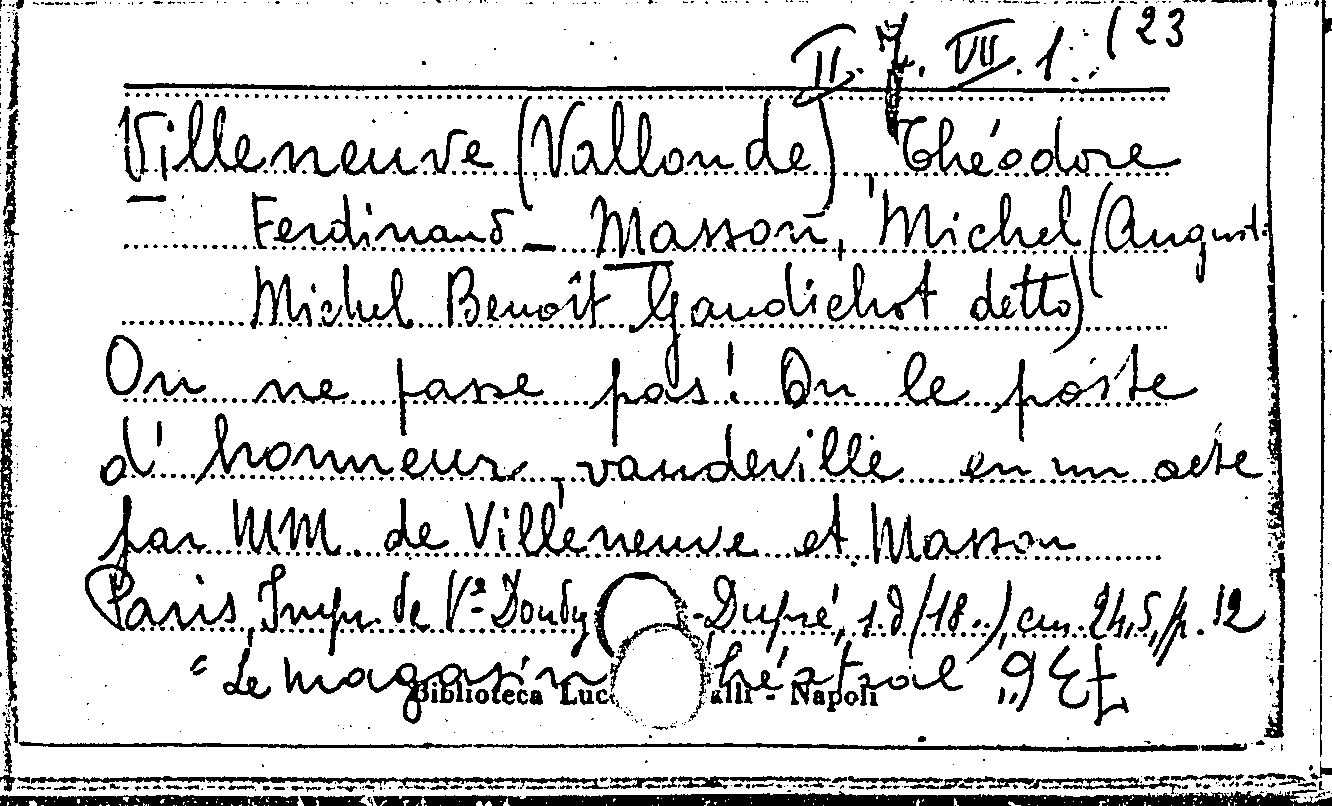 II. 7. VII. 1. (23
Villeneuve (Vallon de) Théodore
Ferdinand - Masson, Michel (August.
Michel Benoît Gaudichot detto)
On ne passe pas! On le poste
d'honneur, vaudeville en un acte
par MM. de Villeneuve et Masson
Paris, Impr. de Vᵉ Dondey-Dupré, s.d. (18..), cm. 24,5, p. 12
"Le magasin théatral"
Biblioteca Luc alli - Napoli